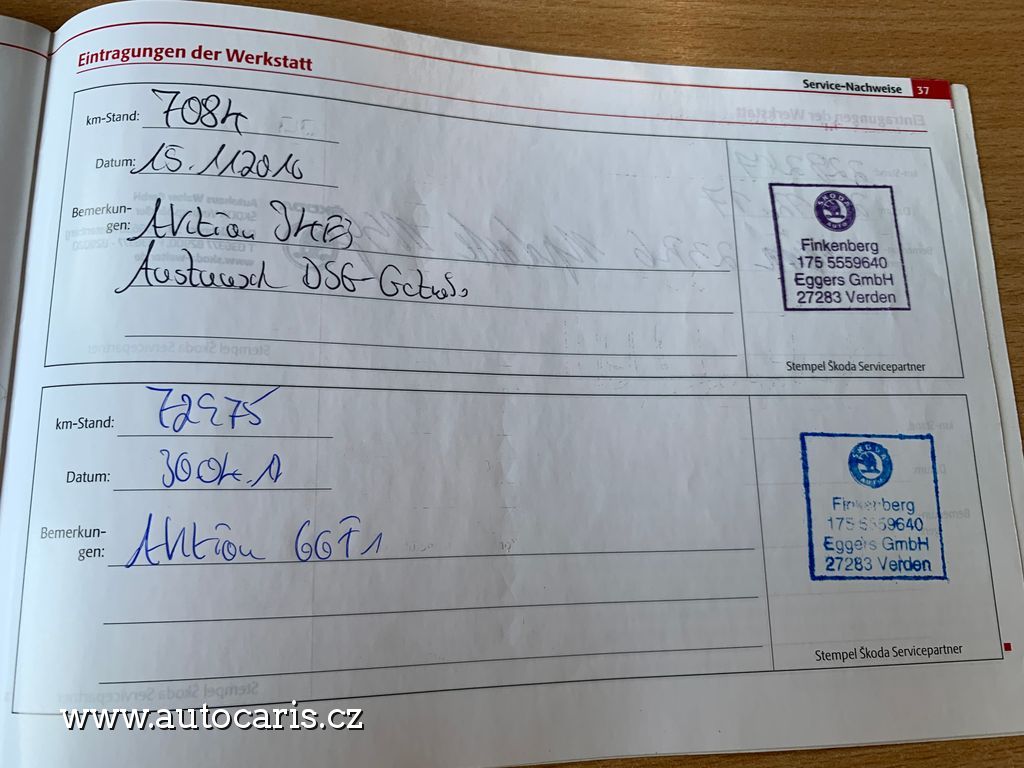 Eintragungen der Werkstatt
Service-Nachweise 37
km-Stand: 7084
Datum: 15.112010
Bemerkun-
gen: Aktion 34E3
Austausch DSG-Getr.
ŠKODA
AUTO
Finkenberg
175 5559640
Eggers GmbH
27283 Verden
Stempel Škoda Servicepartner
km-Stand: 72975
Datum: 3004.11
Bemerkun-
gen: Aktion 66F1
ŠKODA
AUTO
Finkenberg
175 5559640
Eggers GmbH
27283 Verden
Stempel Škoda Servicepartner
www.autocaris.cz